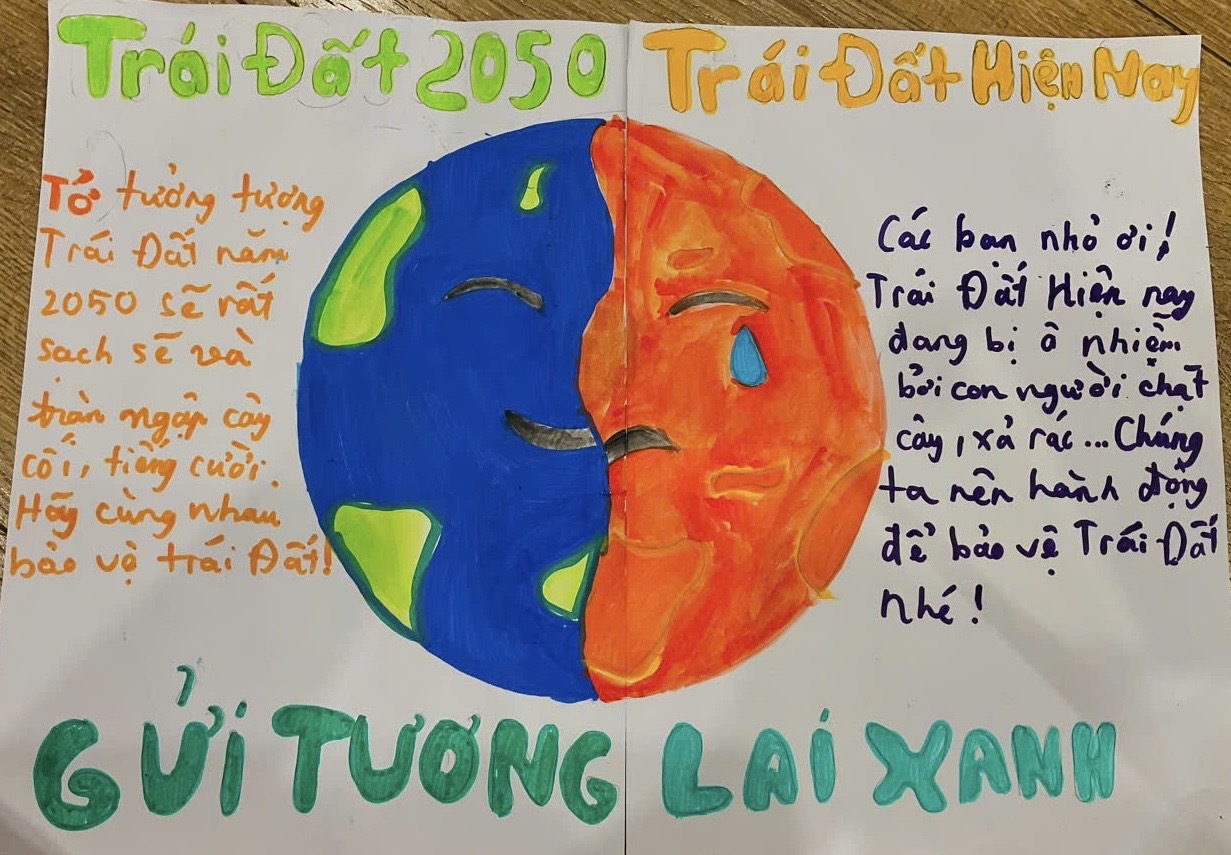 Trái Đất 2050
Trái Đất Hiện Nay
Tớ tưởng tượng
Trái Đất năm
2050 sẽ rất
sạch sẽ và
tràn ngập cây
cối, tiếng cười.
Hãy cùng nhau
bảo vệ trái Đất!
Các bạn nhỏ ơi!
Trái Đất Hiện nay
đang bị ô nhiễm
bởi con người chặt
cây, xả rác... Chúng
ta nên hành động
để bảo vệ Trái Đất
nhé!
GỬI TƯƠNG LAI XANH